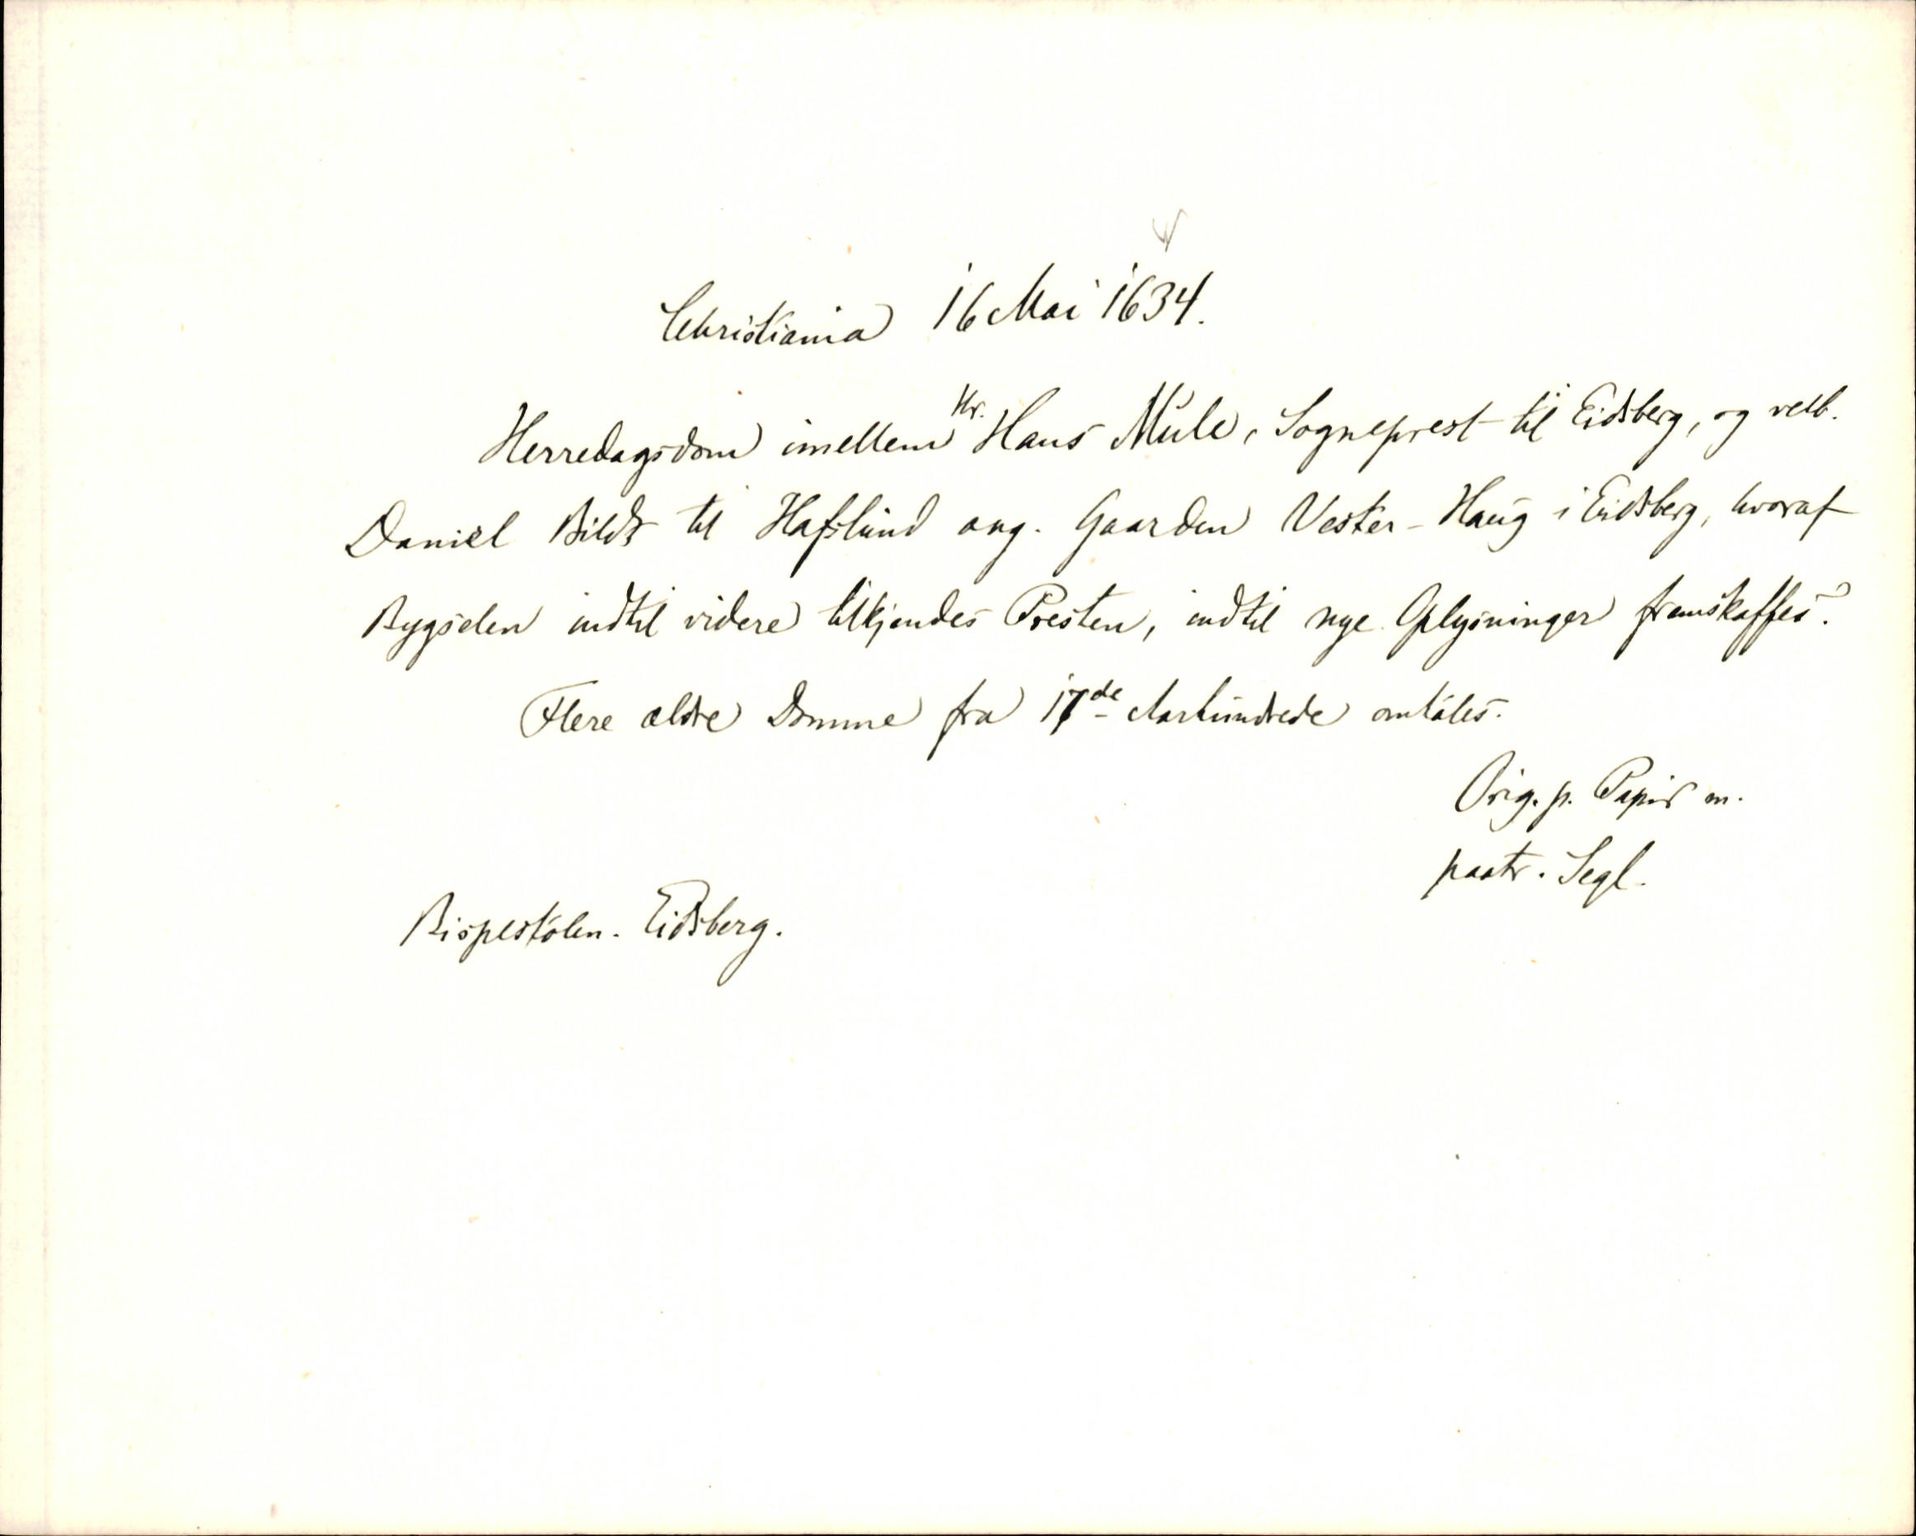 Christiania 16 Mai 1634.
Herredagsdom imellem Hr. Hans Mule, Sogneprest til Eidsberg, og velb.
Daniel Bildt til Hafslund ang. Gaarden Vester-Haug i Eidsberg, hvoraf
Bygselen indtil videre tilkjendes Presten, indtil nye Oplysninger fremskaffes.
Flere ældre Domme fra 17de Aarhundrede omtales.
Orig. p. Papir m.
paatr. Segl.
Bispestolen. Eidsberg.